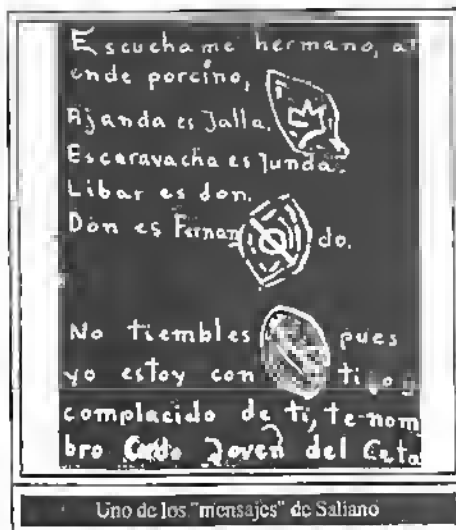 Escuchame hermano, at
ende porcino,
Ajanda es Jalla.
Escaravacha es Junda.
Libar es don.
Don es Fernan do.
No tiembles pues
yo estoy con tigo y
complacido de ti, te nom
bro Joven del Ceta
Uno de los "mensajes" de Saliano